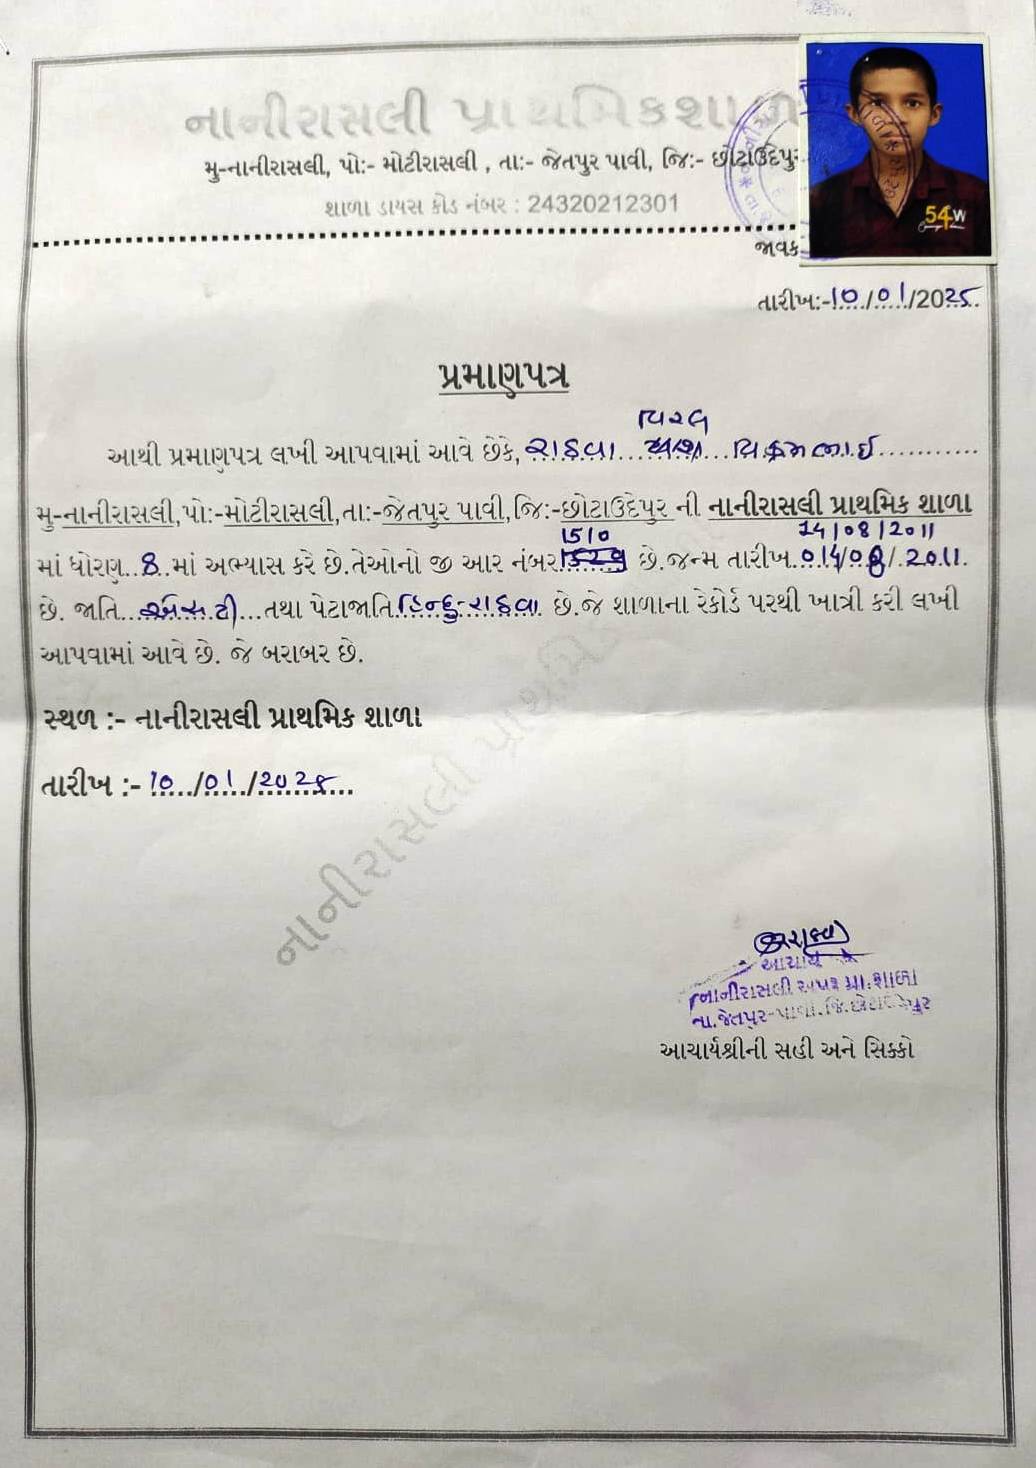 નાનીરાસલી પ્રાથમિકશાળા
મુ-નાનીરાસલી, પો:- મોટીરાસલી , તા:- જેતપુર પાવી, જિ:- છોટાઉદેપુર
શાળા ડાયસ કોડ નંબર : 24320212301
54 W
જાવક
તારીખ:-10/01/2025
પ્રમાણપત્ર
વિરલ
આથી પ્રમાણપત્ર લખી આપવામાં આવે છેકે, રાઠવા વિક્રમભાઇ
મુ-નાનીરાસલી,પો:-મોટીરાસલી,તા:-જેતપુર પાવી,જિ:-છોટાઉદેપુર ની નાનીરાસલી પ્રાથમિક શાળા
1510 14/08/2011
માં ધોરણ..8..માં અભ્યાસ કરે છે.તેઓનો જી આર નંબર છે.જન્મ તારીખ 2011.
છે. જાતિ...એસ.ટી...તથા પેટાજાતિ હિન્દુ-રાઠવા છે.જે શાળાના રેકોર્ડ પરથી ખાત્રી કરી લખી
આપવામાં આવે છે. જે બરાબર છે.
સ્થળ :- નાનીરાસલી પ્રાથમિક શાળા
તારીખ :- 10/01/2025
નાનીરાસલી પ્રાથમિક
આચાર્ય
નાનીરાસલી પ્રા.શાળા
તા.જેતપુર-પાવી.જિ.છોટાઉદેપુર
આચાર્યશ્રીની સહી અને સિક્કો